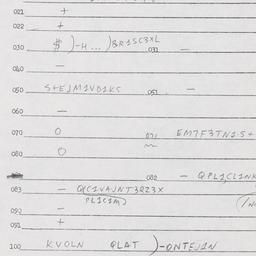 021 +
022 +
030 $ )-H...)BR1SC3XL 031 —
040 —
050 S+EJM1VD1KS 051 —
060 —
070 O 071 EM7F3TN25+
080 O
082 — QPL1CL1NK
083 — Q(C1VAJNT3RZ3X
PL1C1M)
090 —
091 +
100 KVOLN QLAT )-QNTEJ1N